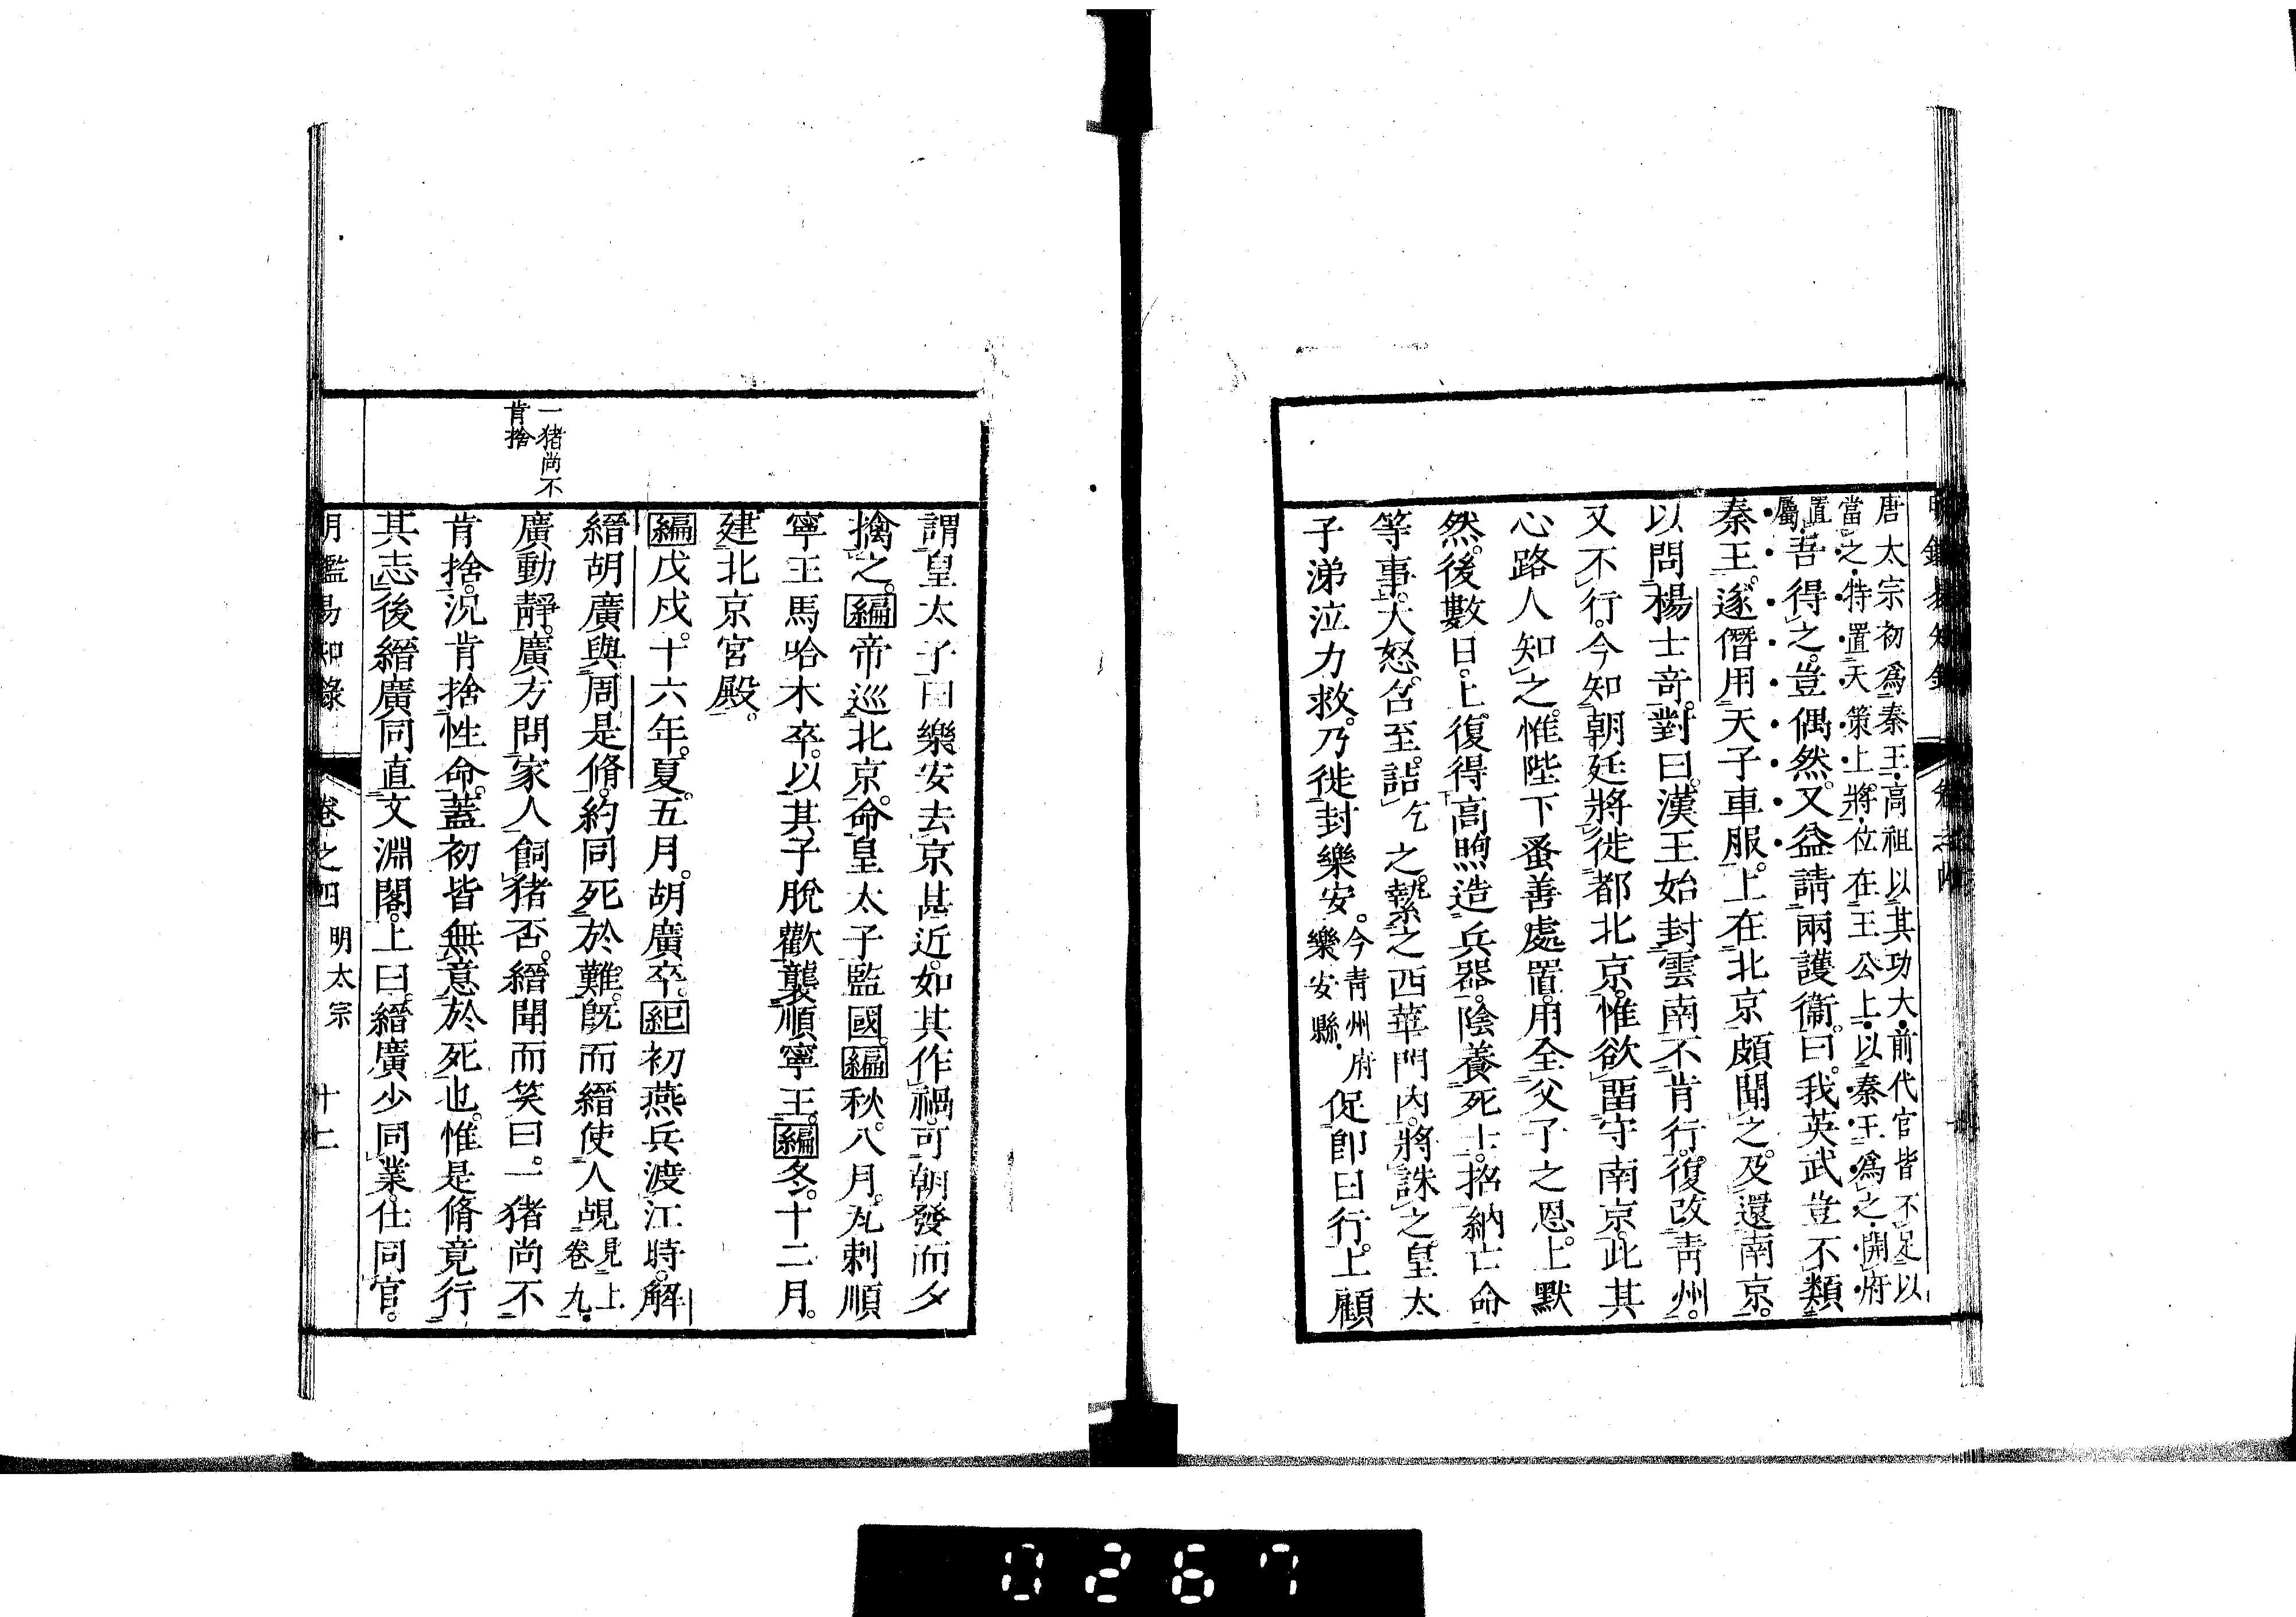 唐太宗初爲秦王高祖以其功大前代官皆不足以
當之特置天策上將位在王公上以秦王爲之開府
置
屬吾得之豈偶然又益請兩護衞曰我英武豈不類
秦王遂僭用天子車服上在北京頗聞之及還南京
以問楊士竒對曰漢王始封雲南不肯行復改靑州
又不行今知朝廷將徙都北京惟欲畱守南京此其
心路人知之惟陛下蚤善處置用全父子之恩上默
然後數日上復得高煦造兵器陰養死士招納亡命
等事大怒召至詰乞之縶之西華門內將誅之皇太
子涕泣力救乃徙封樂安今靑州府
樂安縣促卽日行上顧
謂皇太子曰樂安去京甚近如其作禍可朝發而夕
擒之編帝巡北京命皇太子監國編秋八月瓦剌順
寧王馬哈木卒以其子脫歡襲順寧王編冬十二月
建北京宮殿
編戊戌十六年夏五月胡廣卒紀初燕兵渡江時解
縉胡廣與周是脩約同死於難旣而縉使人覘見上
卷九
廣動靜廣方問家人飼猪否縉聞而笑曰一猪尚不
肯捨況肯捨性命蓋初皆無意於死也惟是脩竟行
其志後縉廣同直文淵閣上曰縉廣少同業仕同官
一猪尚不
肯捨
明鑑易知錄 卷之四 明太宗 十二
0267